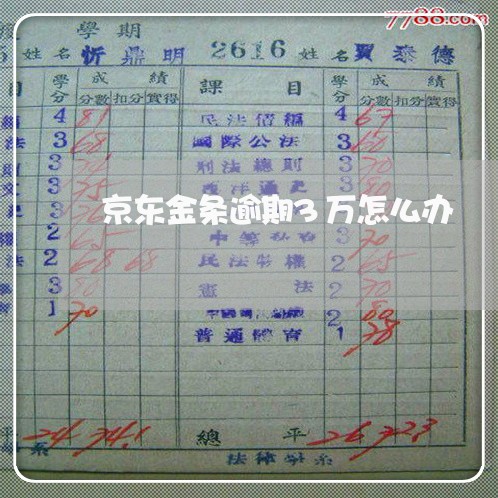 7788.com
學期
姓名 忻鼎明 2616 姓名 賈泰德
目 學分 成績 課目 學分 成績
分數 扣分 實得 分數 扣分 實得
4 81 民法債編 4 67
法 3 68 國際公法 3 60
3 刑法總則 3 70
3 75 西洋通史 3 80
京东金条逾期3万怎么办
2 65 3 70
法 2 68 68 民法物權 2 65
3 80 憲法 2 70
1 70 2 80
普通體育 1 78
平 24 74.1 總平 26 72.3
系 法律學系